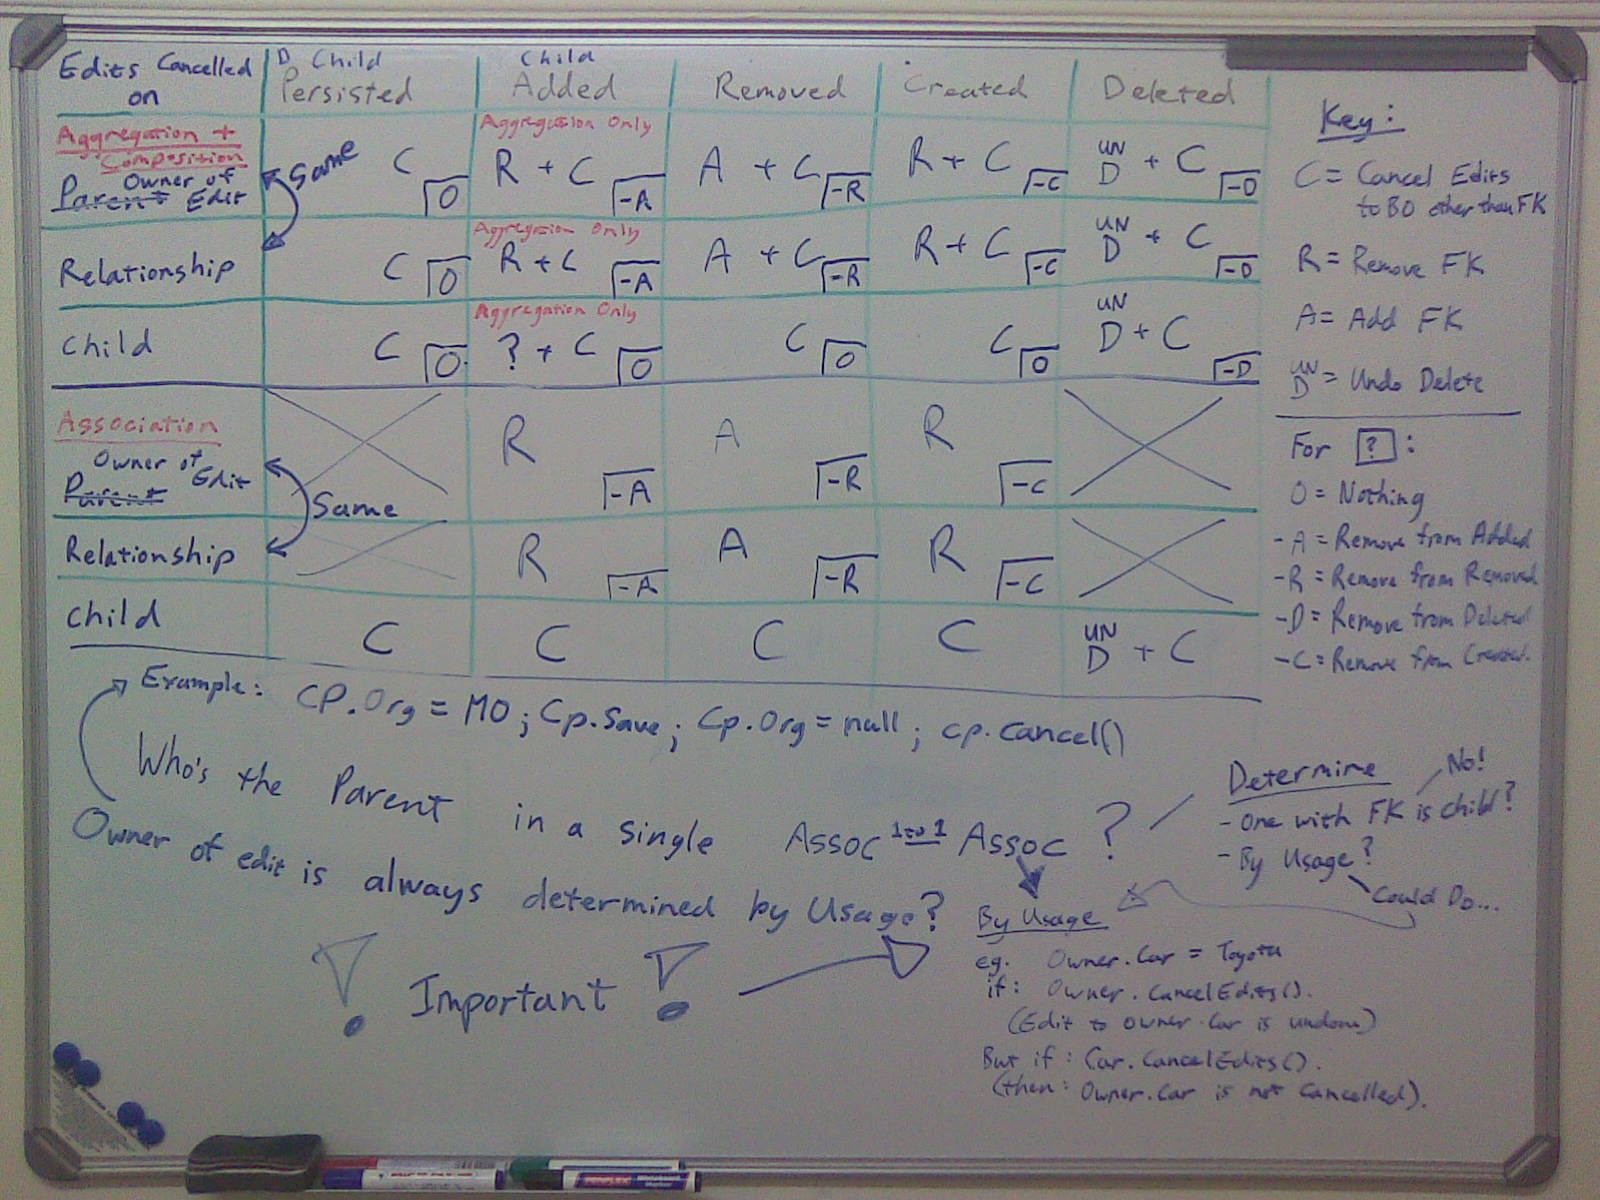 Edits Cancelled on
D Child Persisted
Child Added
Removed
Created
Deleted
Aggregation + Composition
Owner of
Parent Edit
Same
C 0
Aggregation Only
R + C -A
A + C -R
R + C -C
UN D + C -D
Relationship
C 0
Aggregation Only
R + C -A
A + C -R
R + C -C
UN D + C -D
Child
C 0
Aggregation Only
? + C 0
C 0
C 0
UN D + C -D
Association
Owner of
Parent Edit
Same
R -A
A -R
R -C
Relationship
R -A
A -R
R -C
Child
C
C
C
C
UN D + C
Key:
C = Cancel Edits
to BO other than FK
R = Remove FK
A = Add FK
UN D = Undo Delete
For ? :
0 = Nothing
-A = Remove from Added
-R = Remove from Removed
-D = Remove from Deleted
-C = Remove from Created.
Example: CP.Org = MO; Cp.Save; Cp.Org = null; cp.Cancel()
Who's the Parent in a single Assoc 1 to 1 Assoc ?
Owner of edit is always determined by Usage?
! Important !
Determine
No!
- One with FK is child?
- By Usage?
Could Do...
By Usage
eg. Owner.Car = Toyota
if: Owner.CancelEdits().
(Edit to Owner.Car is undone)
But if: Car.CancelEdits().
(then: Owner.Car is not Cancelled).